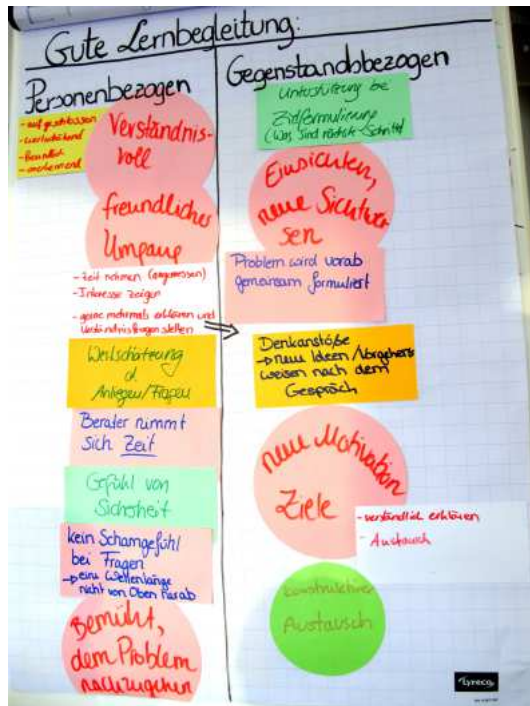 Gute Lernbegleitung:
Personenbezogen
- aufgeschlossen
- wertschätzend
- freundlich
- anerkennend
Verständnis-
voll
freundlicher
Umgang
- Zeit nehmen (angemessen)
- Interesse zeigen
- gerne mehrmals erklären und
Verständnisfragen stellen
Wertschätzung
d.
Anliegen/Fragen
Berater nimmt
sich Zeit
Gefühl von
Sicherheit
kein Schamgefühl
bei Fragen
→ eine Wellenlänge
nicht von Oben herab
Bemüht,
dem Problem
nachzugehen
Gegenstandsbezogen
Unterstützung bei
Zielformulierung
(Was sind nächste Schritte)
Einsichten,
neue Sichtwei
sen
Problem wird vorab
gemeinsam formuliert
Denkanstöße
→ neue Ideen/Vorgehens
weisen nach dem
Gespräch
neue Motivation
Ziele
- verständlich erklären
- Austausch
konstruktiver
Austausch
lyreco